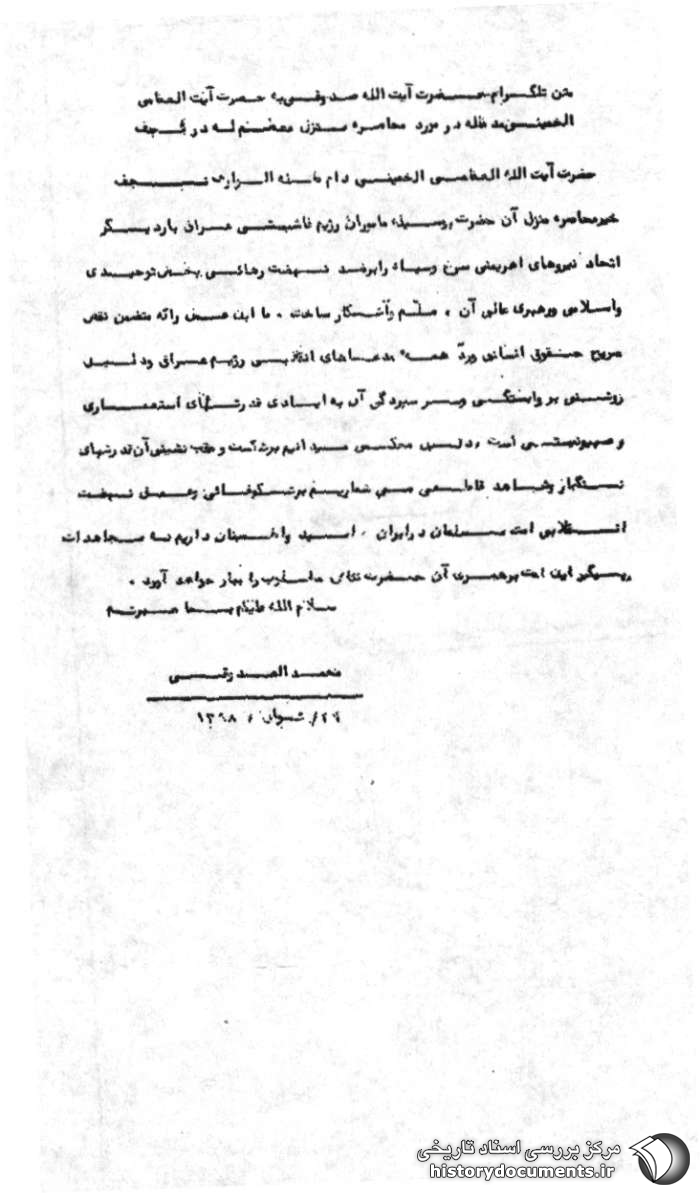 متن تلگرام حضرت آیت الله صدوقی به حضرت آیت العظمی
الخمینی مد ظله در مورد محاصره منزل معظم له در نجف
حضرت آیت الله العظمی الخمینی دام ظله العالی نجف
خبر محاصره منزل آن حضرت بوسیله ماموران رژیم فاشیستی عراق بار دیگر
اتحاد نیروهای اهریمنی سرخ و سیاه را بر ضد نهضت رهائی بخش توحیدی
و اسلامی و رهبری عالی آن ، مسلّم و آشکار ساخت . ما این عمل را که متضمن نقض
صریح حقوق انسانی و ردّ همه مدعاهای انقلابی رژیم عراق و دلیل
روشنی بر وابستگی و سر سپردگی آن به ایادی قدرتهای استعماری
و صهیونیستی است ، دلیل محکمی میدانیم بر شکست و عقب نشینی آن قدرتهای
و شاهد قاطعی می شماریم بر شکوفائی و عمل نهضت
انقلابی امت مسلمان در ایران . امید و اطمینان داریم که مجاهدات
پیگیر این امت برهبری آن حضرت نتائج مطلوب را ببار خواهد آورد .
سلام الله علیکم بما صبرتم
محمد الصدوقی
شوال ۱۳۹۸
مرکز بررسی اسناد تاریخی
historydocuments.ir